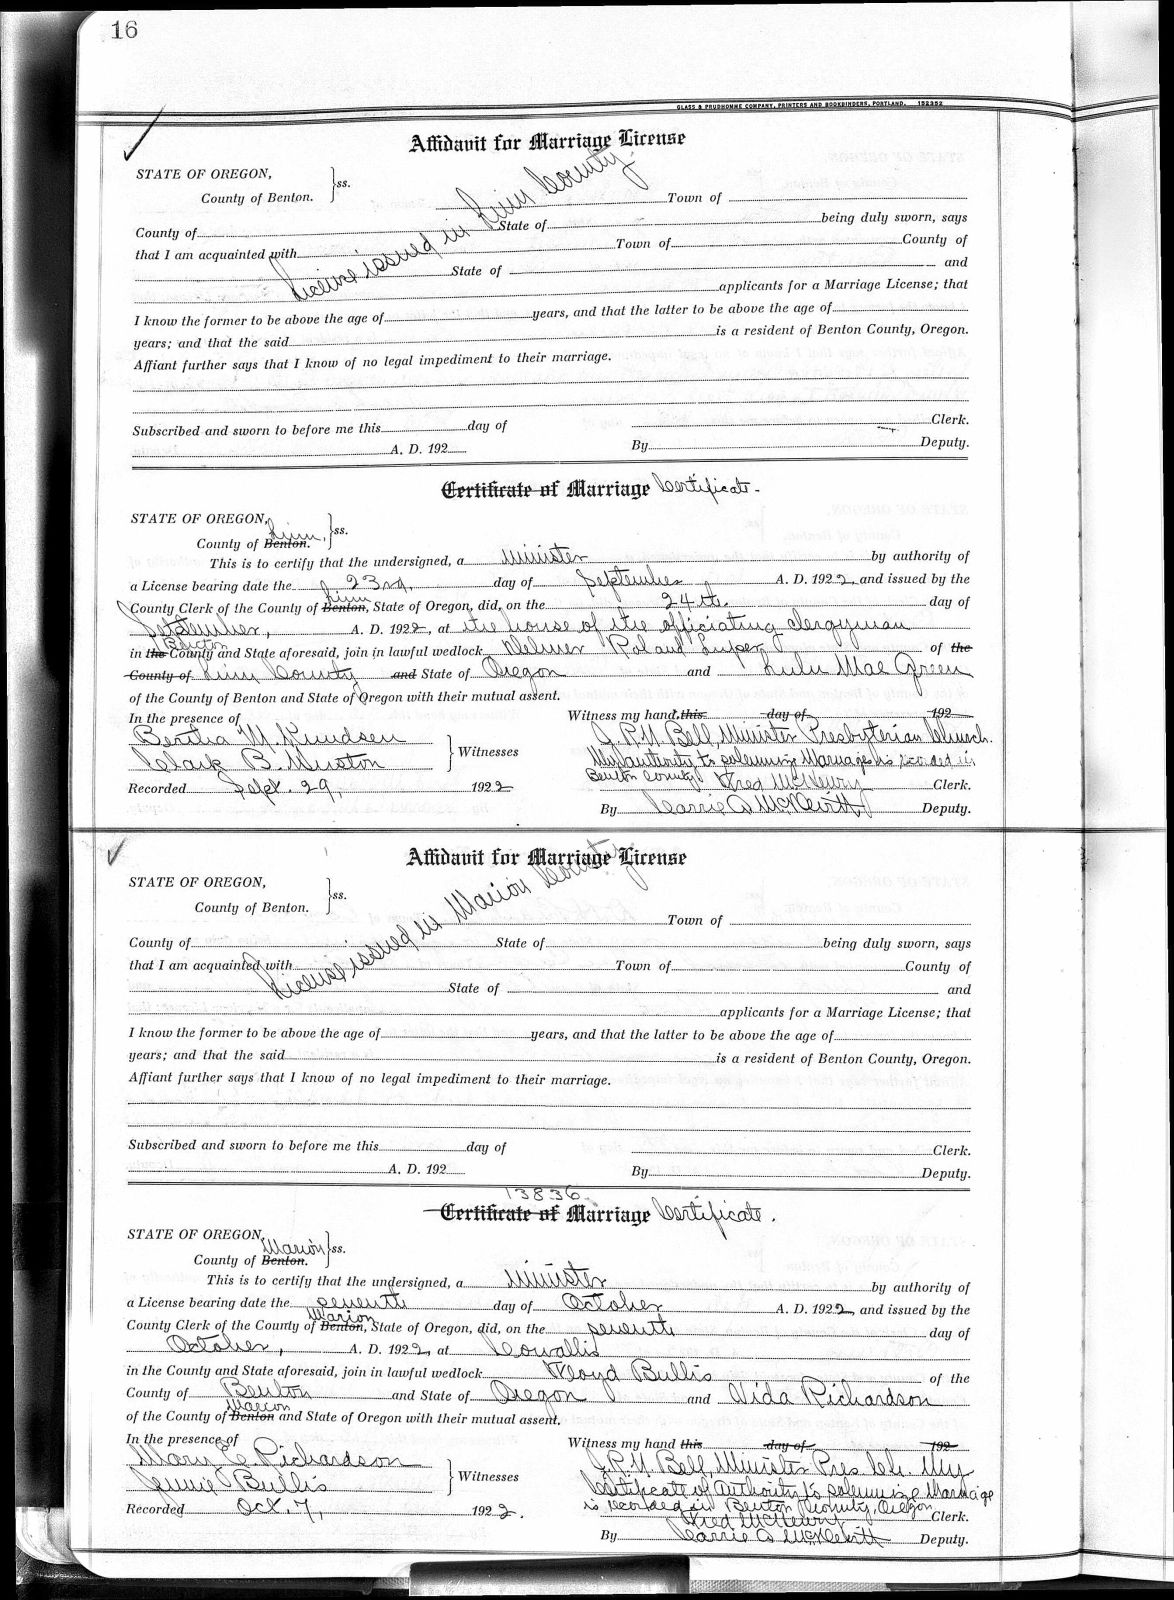 16
GLASS & PRUDHOMME COMPANY, PRINTERS AND BOOKBINDERS, PORTLAND. 152352
Affidavit for Marriage License
STATE OF OREGON,
County of Benton. } ss.
License issued in Linn County.
Town of
County of State of being duly sworn, says
that I am acquainted with Town of County of
State of and
applicants for a Marriage License; that
I know the former to be above the age of years, and that the latter to be above the age of
years; and that the said is a resident of Benton County, Oregon.
Affiant further says that I know of no legal impediment to their marriage.
Subscribed and sworn to before me this day of Clerk.
A. D. 192 By Deputy.
Certificate of Marriage Certificate.
STATE OF OREGON,
Linn,
County of Benton. } ss.
This is to certify that the undersigned, a Minister by authority of
a License bearing date the 23rd, day of September A. D. 1922, and issued by the
Linn
County Clerk of the County of Benton, State of Oregon, did, on the 24th. day of
September, A. D. 1922, at the house of the officiating clergyman
Benton
in the County and State aforesaid, join in lawful wedlock Roland of the
County of Linn County and State of Oregon and Lulu Mae Green
of the County of Benton and State of Oregon with their mutual assent.
In the presence of Witness my hand this day of 192
Bertha M. Knudsen J. R. N. Bell, Minister Presbyterian Church.
Clark B. } Witnesses My authority to solemnize Marriage is recorded in
Benton County Fred McHenry Clerk.
Recorded Sept. 29, 1922
By Carrie A McDevitt Deputy.
Affidavit for Marriage License
STATE OF OREGON,
County of Benton. } ss.
License issued in Marion County
Town of
County of State of being duly sworn, says
that I am acquainted with Town of County of
State of and
applicants for a Marriage License; that
I know the former to be above the age of years, and that the latter to be above the age of
years; and that the said is a resident of Benton County, Oregon.
Affiant further says that I know of no legal impediment to their marriage.
Subscribed and sworn to before me this day of Clerk.
A. D. 192 By Deputy.
13836
Certificate of Marriage Certificate.
STATE OF OREGON,
Marion
County of Benton. } ss.
This is to certify that the undersigned, a Minister by authority of
a License bearing date the seventh day of October A. D. 1922, and issued by the
Marion
County Clerk of the County of Benton, State of Oregon, did, on the seventh day of
October, A. D. 1922, at Corvallis
in the County and State aforesaid, join in lawful wedlock Floyd Bullis of the
County of Benton and State of Oregon and Vida Richardson
Marion
of the County of Benton and State of Oregon with their mutual assent.
In the presence of Witness my hand this day of 192
Mary E. Richardson J. R. N. Bell, Minister Pres Ch. My
Jennie Bullis } Witnesses Certificate of Authority to solemnize Marriage
is recorded in Benton County, Oregon.
Recorded Oct. 7, 1922. Fred McHenry Clerk.
By Carrie A McDevitt Deputy.